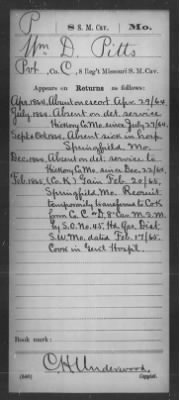 P | 8 S. M. Cav. | Mo.
Wm D. Pitts
Pvt, Co. C, 8 Reg't Missouri S. M. Cav.
Appears on Returns as follows:
Apr. 1864, Absent on escort Apr. 29/64.
July 1864, Absent on det. service
Hickory Co. Mo. since July 27/64.
Sept & Oct. 1864, Absent sick in hosp
Springfield, Mo.
Dec. 1864, Absent on det. service to
Hickory Co. Mo. since Dec. 22/64.
Feb. 1865, (Co. K) Gain Feb. 20/65,
Springfield, Mo. Recruit
temporarily transferred to Co K
from Co. C " D, 8" Cav. M.S.M.
by S.O. No. 45, Hd. Qrs. Dist.
S.W. Mo. dated Feb. 17/65.
Cook in Genl Hospl.
Book mark:
C. H. Underwood,
(546) Copyist.